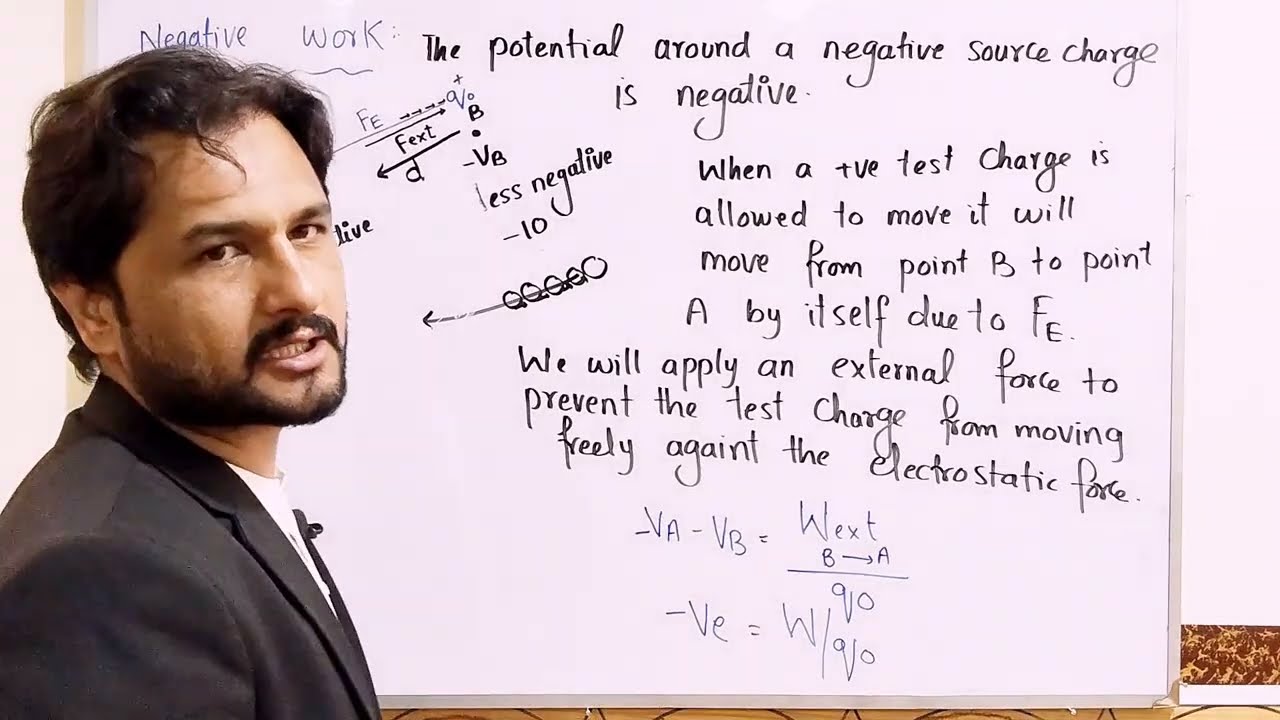 Negative Work:
The potential around a negative source charge
is negative.
+
q₀
B
FE
Fext
d
-VB
less negative
-10
When a +ve test charge is
allowed to move it will
move from point B to point
A by itself due to FE.
We will apply an external force to
prevent the test charge from moving
freely againt the electrostatic force.
-VA - VB = Wext
B → A
q₀
-Ve = W/q₀